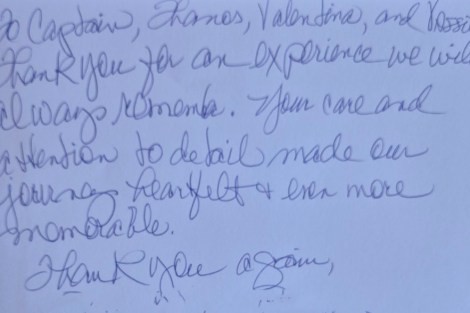 To Captain, Thanos, Valentina, and
Thank you for an experience we will
always remember. Your care and
attention to detail made our
journey heartfelt & even more
memorable.
Thank you again,